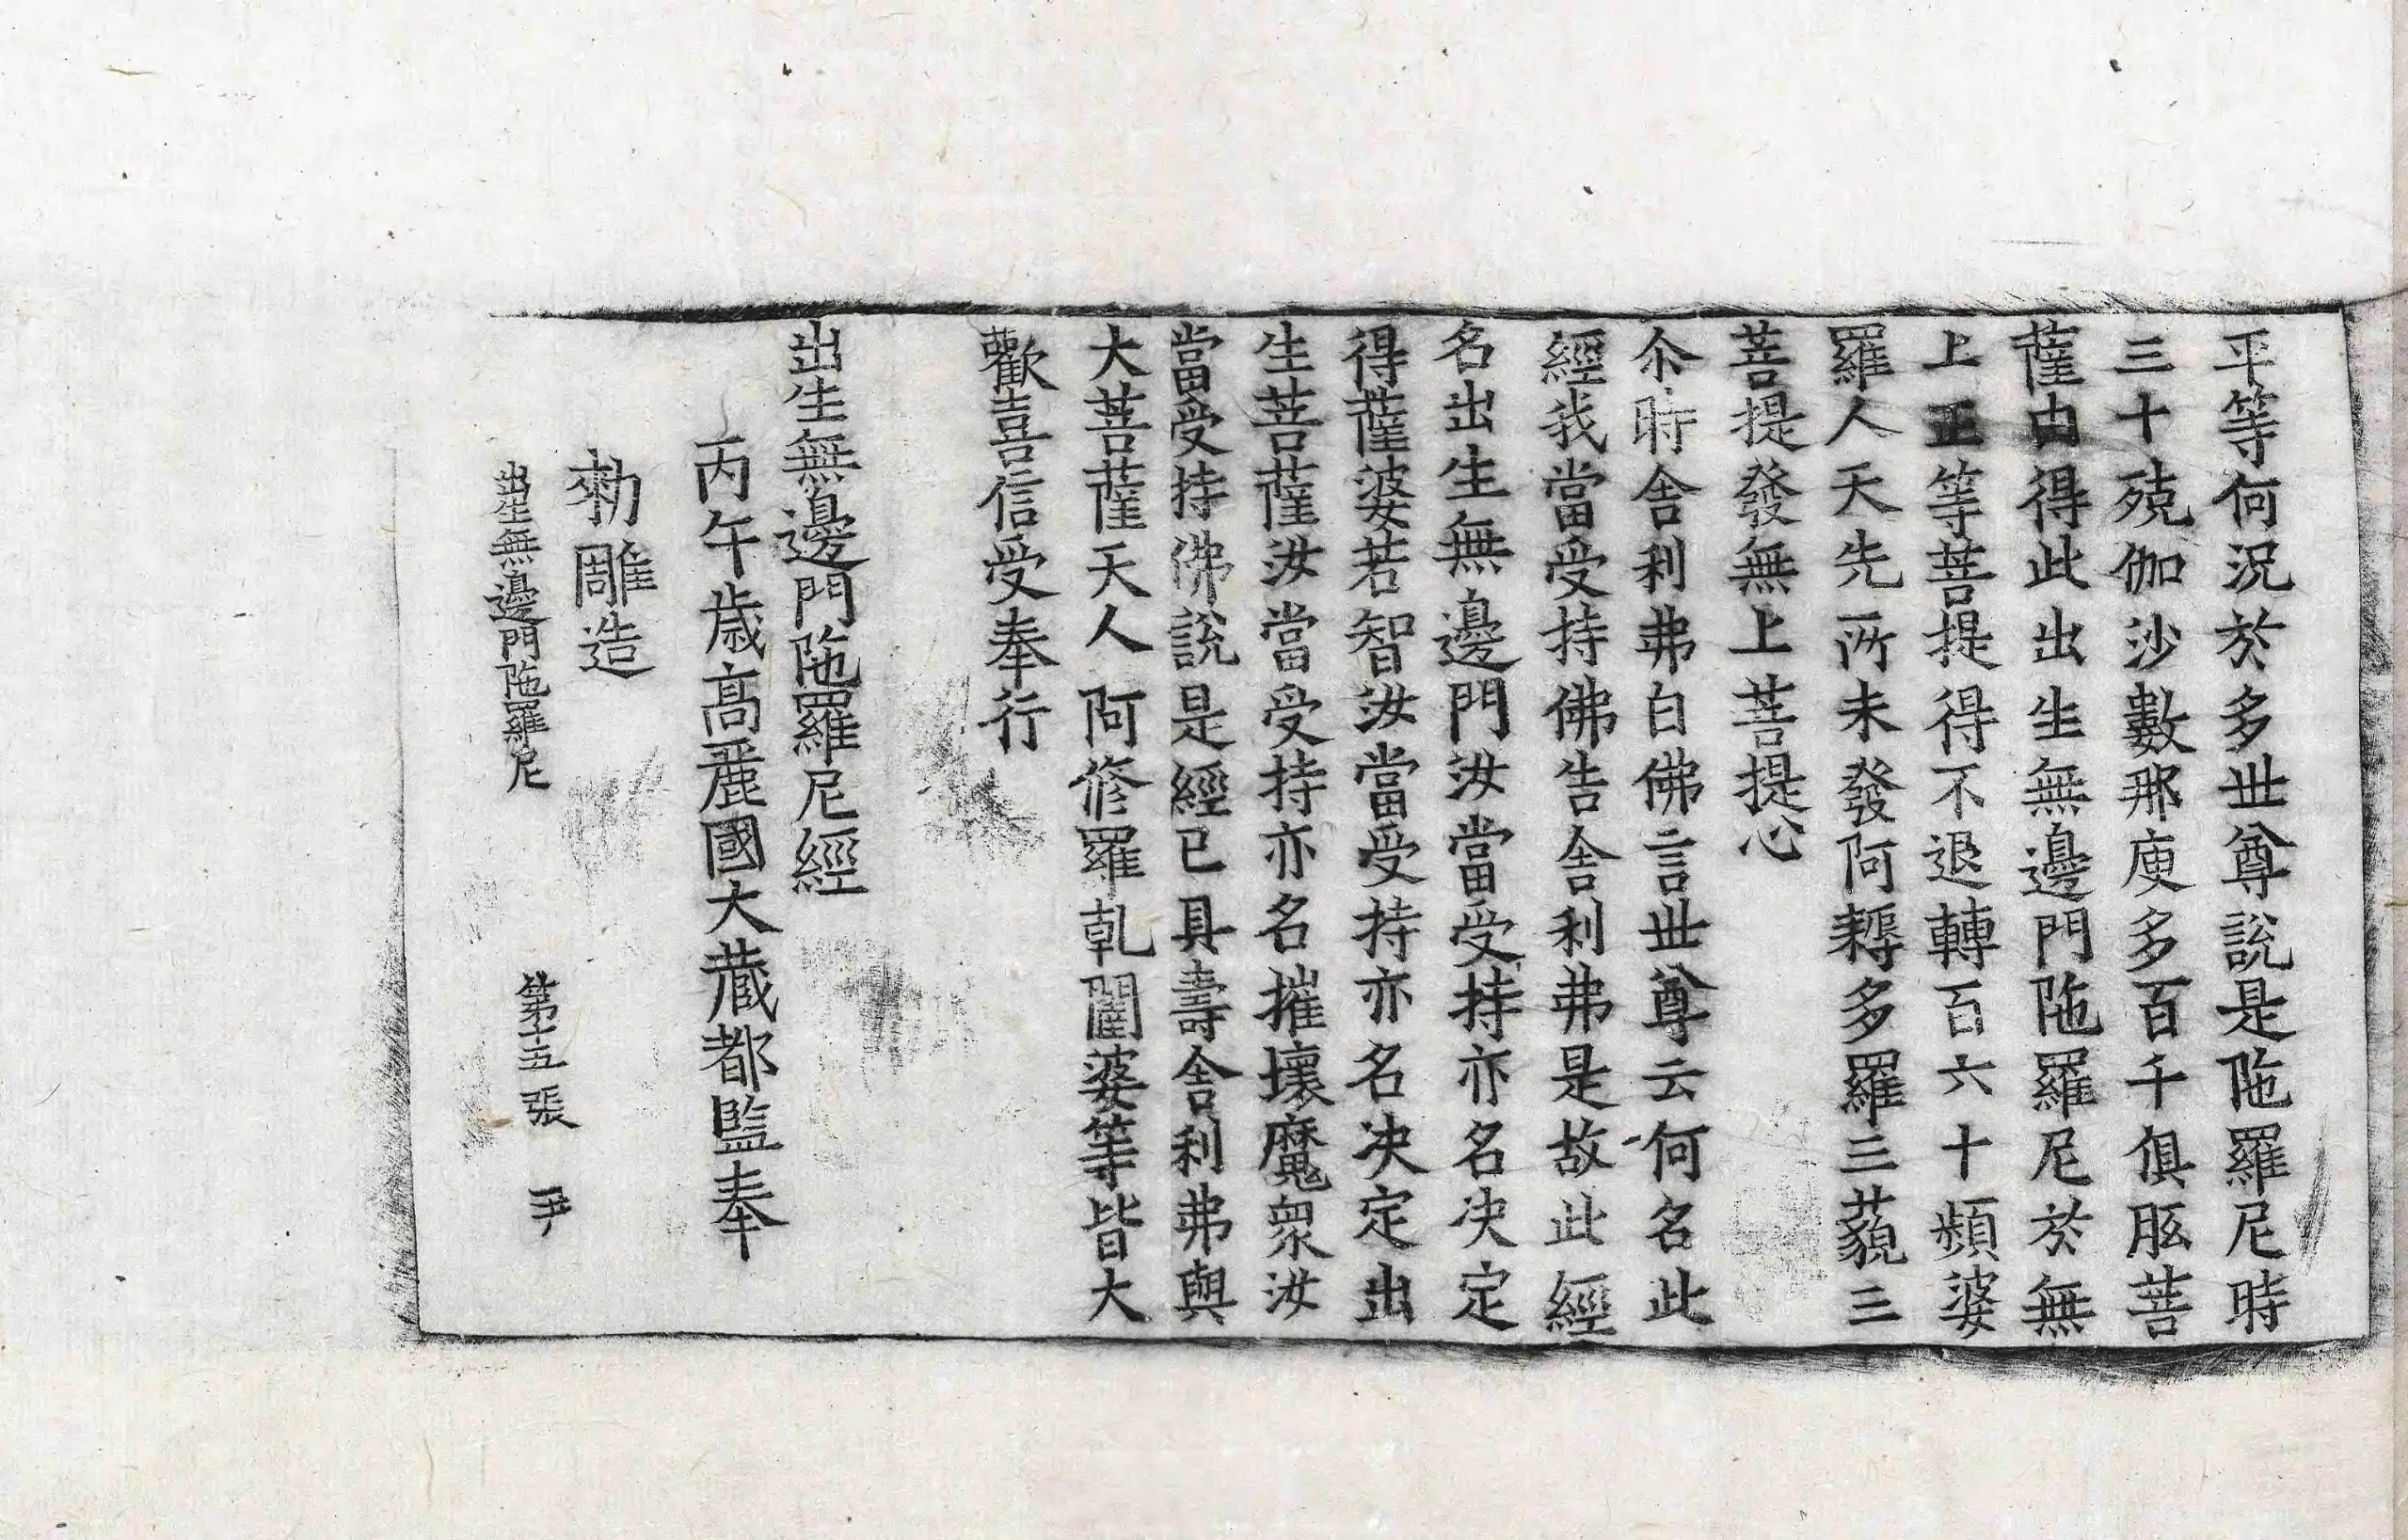 平等何況於多世尊說是陁羅尼時
三十殑伽沙數那庾多百千俱胝菩
薩由得此出生無邊門陁羅尼於無
上正等菩提得不退轉百六十頻婆
羅人天先所未發阿耨多羅三藐三
菩提發無上菩提心
尒時舍利弗白佛言世尊云何名此
經我當受持佛告舍利弗是故此經
名出生無邊門汝當受持亦名决定
得薩婆若智汝當受持亦名决定出
生菩薩汝當受持亦名摧壞魔衆汝
當受持佛說是經已具壽舍利弗與
大菩薩天人阿修羅乹闥婆等皆大
歡喜信受奉行
出生無邊門陁羅尼經
丙午歲高麗國大藏都監奉
勑雕造
出生無邊門陁羅尼 第十五張